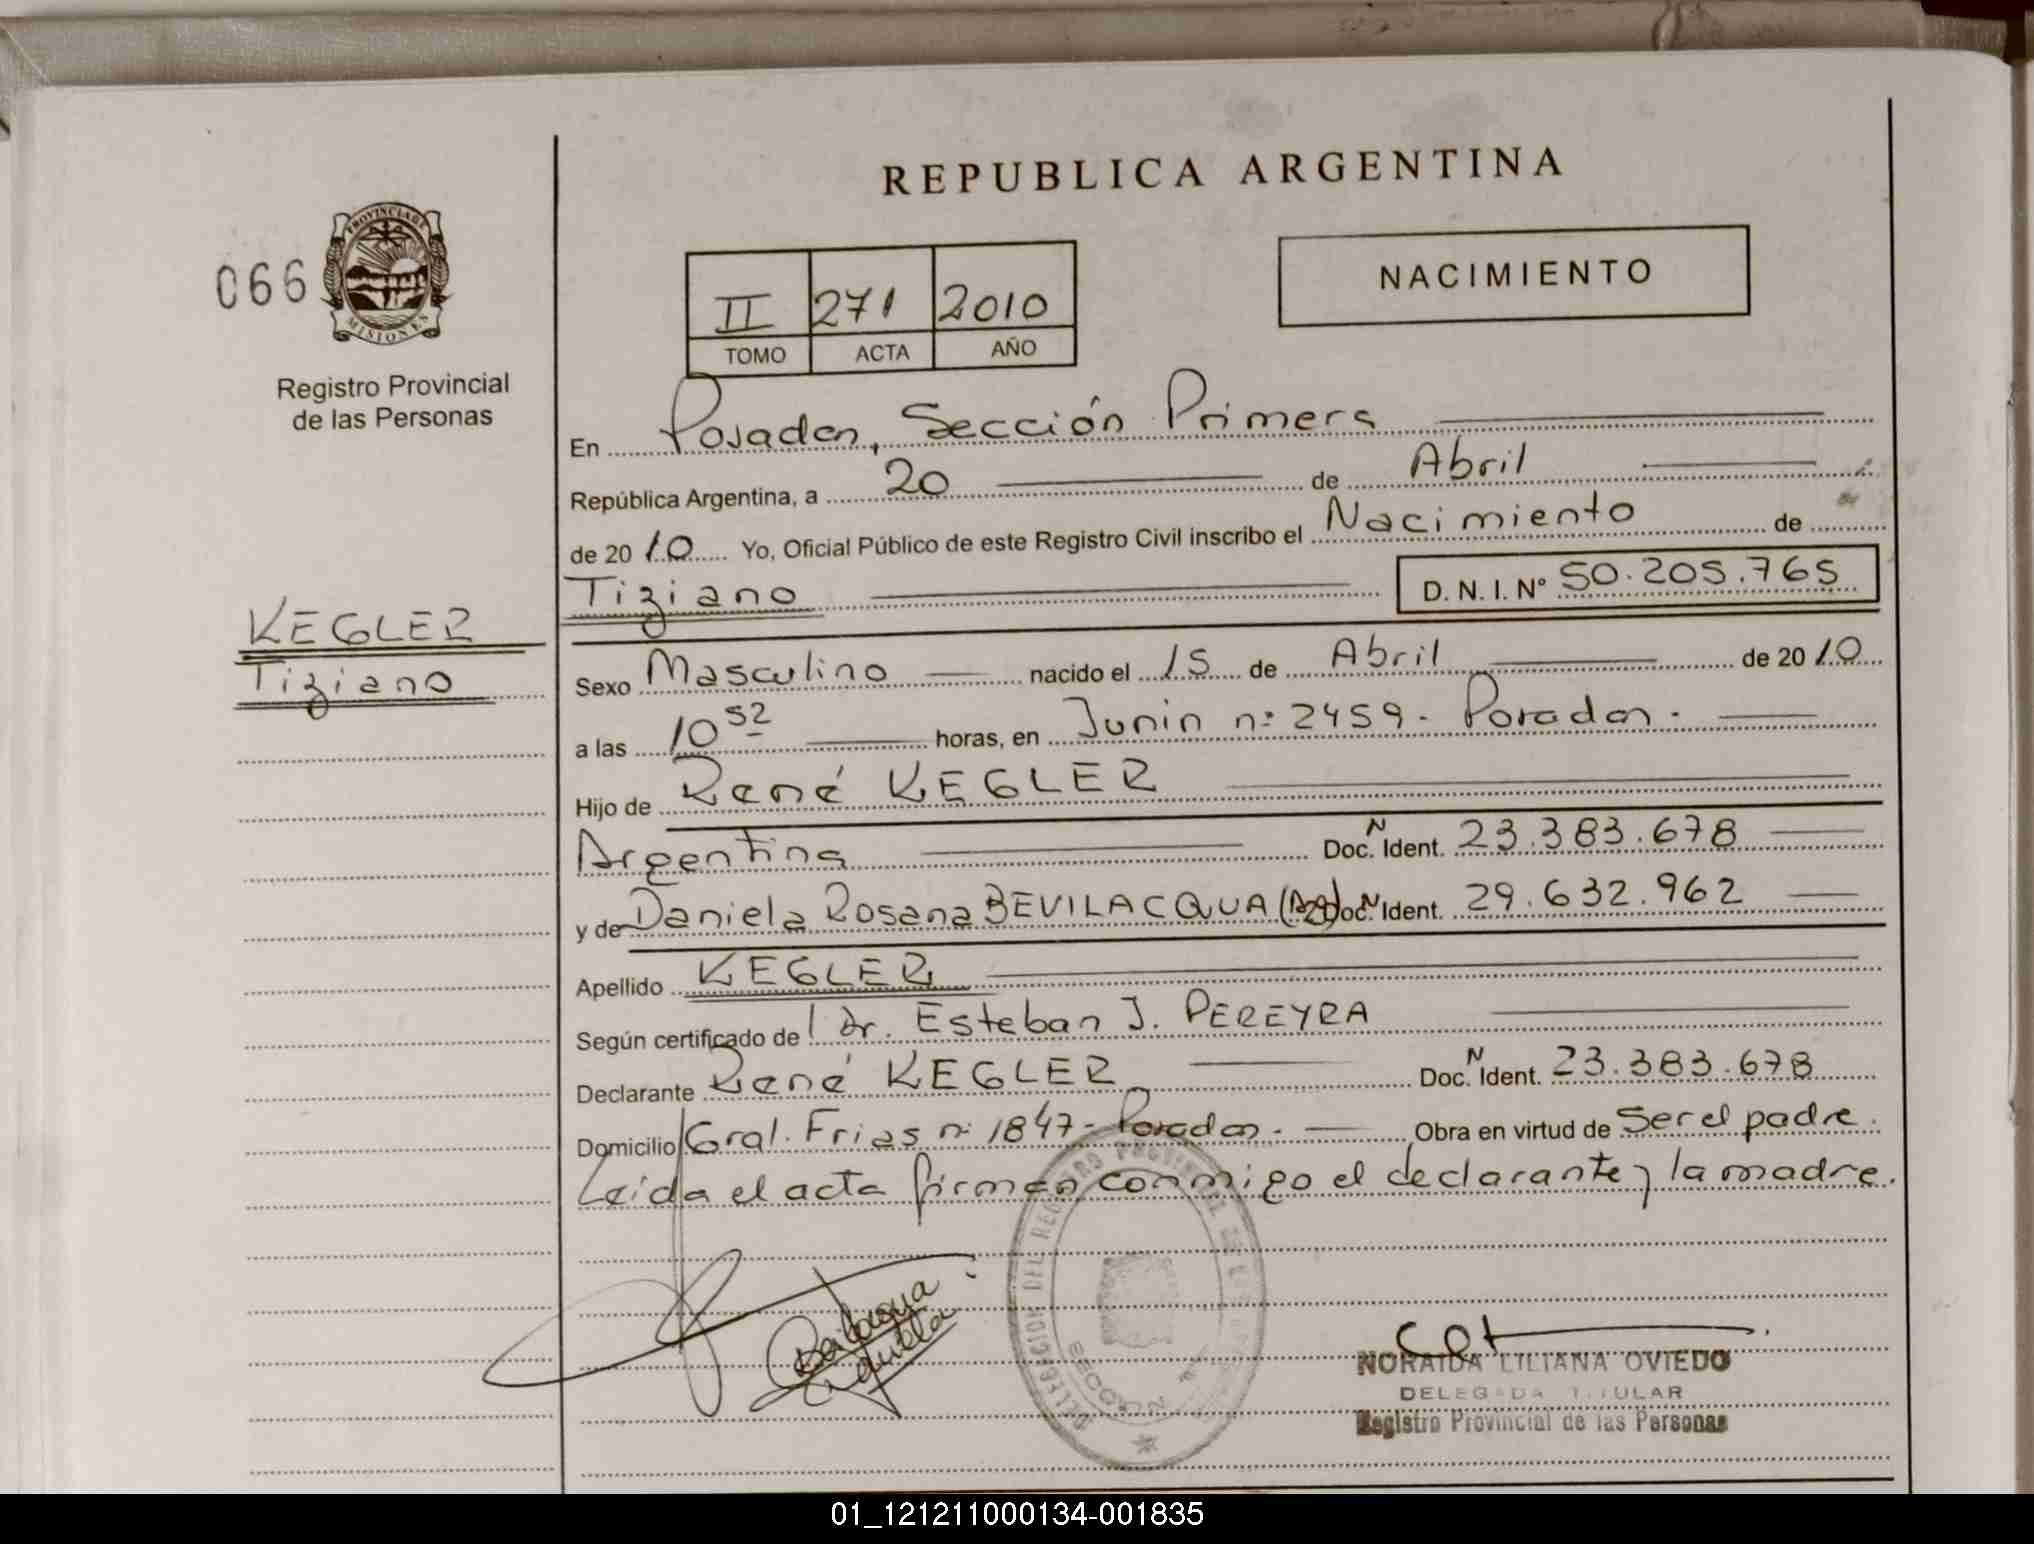 REPUBLICA ARGENTINA
066
PROVINCIA DE
MISIONES
Registro Provincial
de las Personas
II 271 2010
TOMO ACTA AÑO
NACIMIENTO
En Posadas, Sección Primera
República Argentina, a 20 de Abril
de 2010 Yo, Oficial Público de este Registro Civil inscribo el Nacimiento de
Tiziano D. N. I. Nº 50.205.765
KEGLER
Tiziano
Sexo Masculino nacido el 15 de Abril de 2010
a las 10 52 horas, en Junin nº 2459 - Posadas.
Hijo de René KEGLER
Argentina Doc. N Ident. 23.383.678
y de Daniela Rosana BEVILACQUA Doc. N Ident. 29.632.962
Apellido KEGLER
Según certificado de l Dr. Esteban J. PEREYRA
Declarante René KEGLER Doc. N Ident. 23.383.678
Domicilio Gral. Frias nº 1847 - Posadas. Obra en virtud de Ser el padre.
Leida el acta firman conmigo el declarante y la madre.
DELEGACION DEL REGISTRO PROVINCIAL DE
SECCION
NORAIDA LILIANA OVIEDO
DELEGADA TITULAR
Registro Provincial de las Personas
01_121211000134-001835